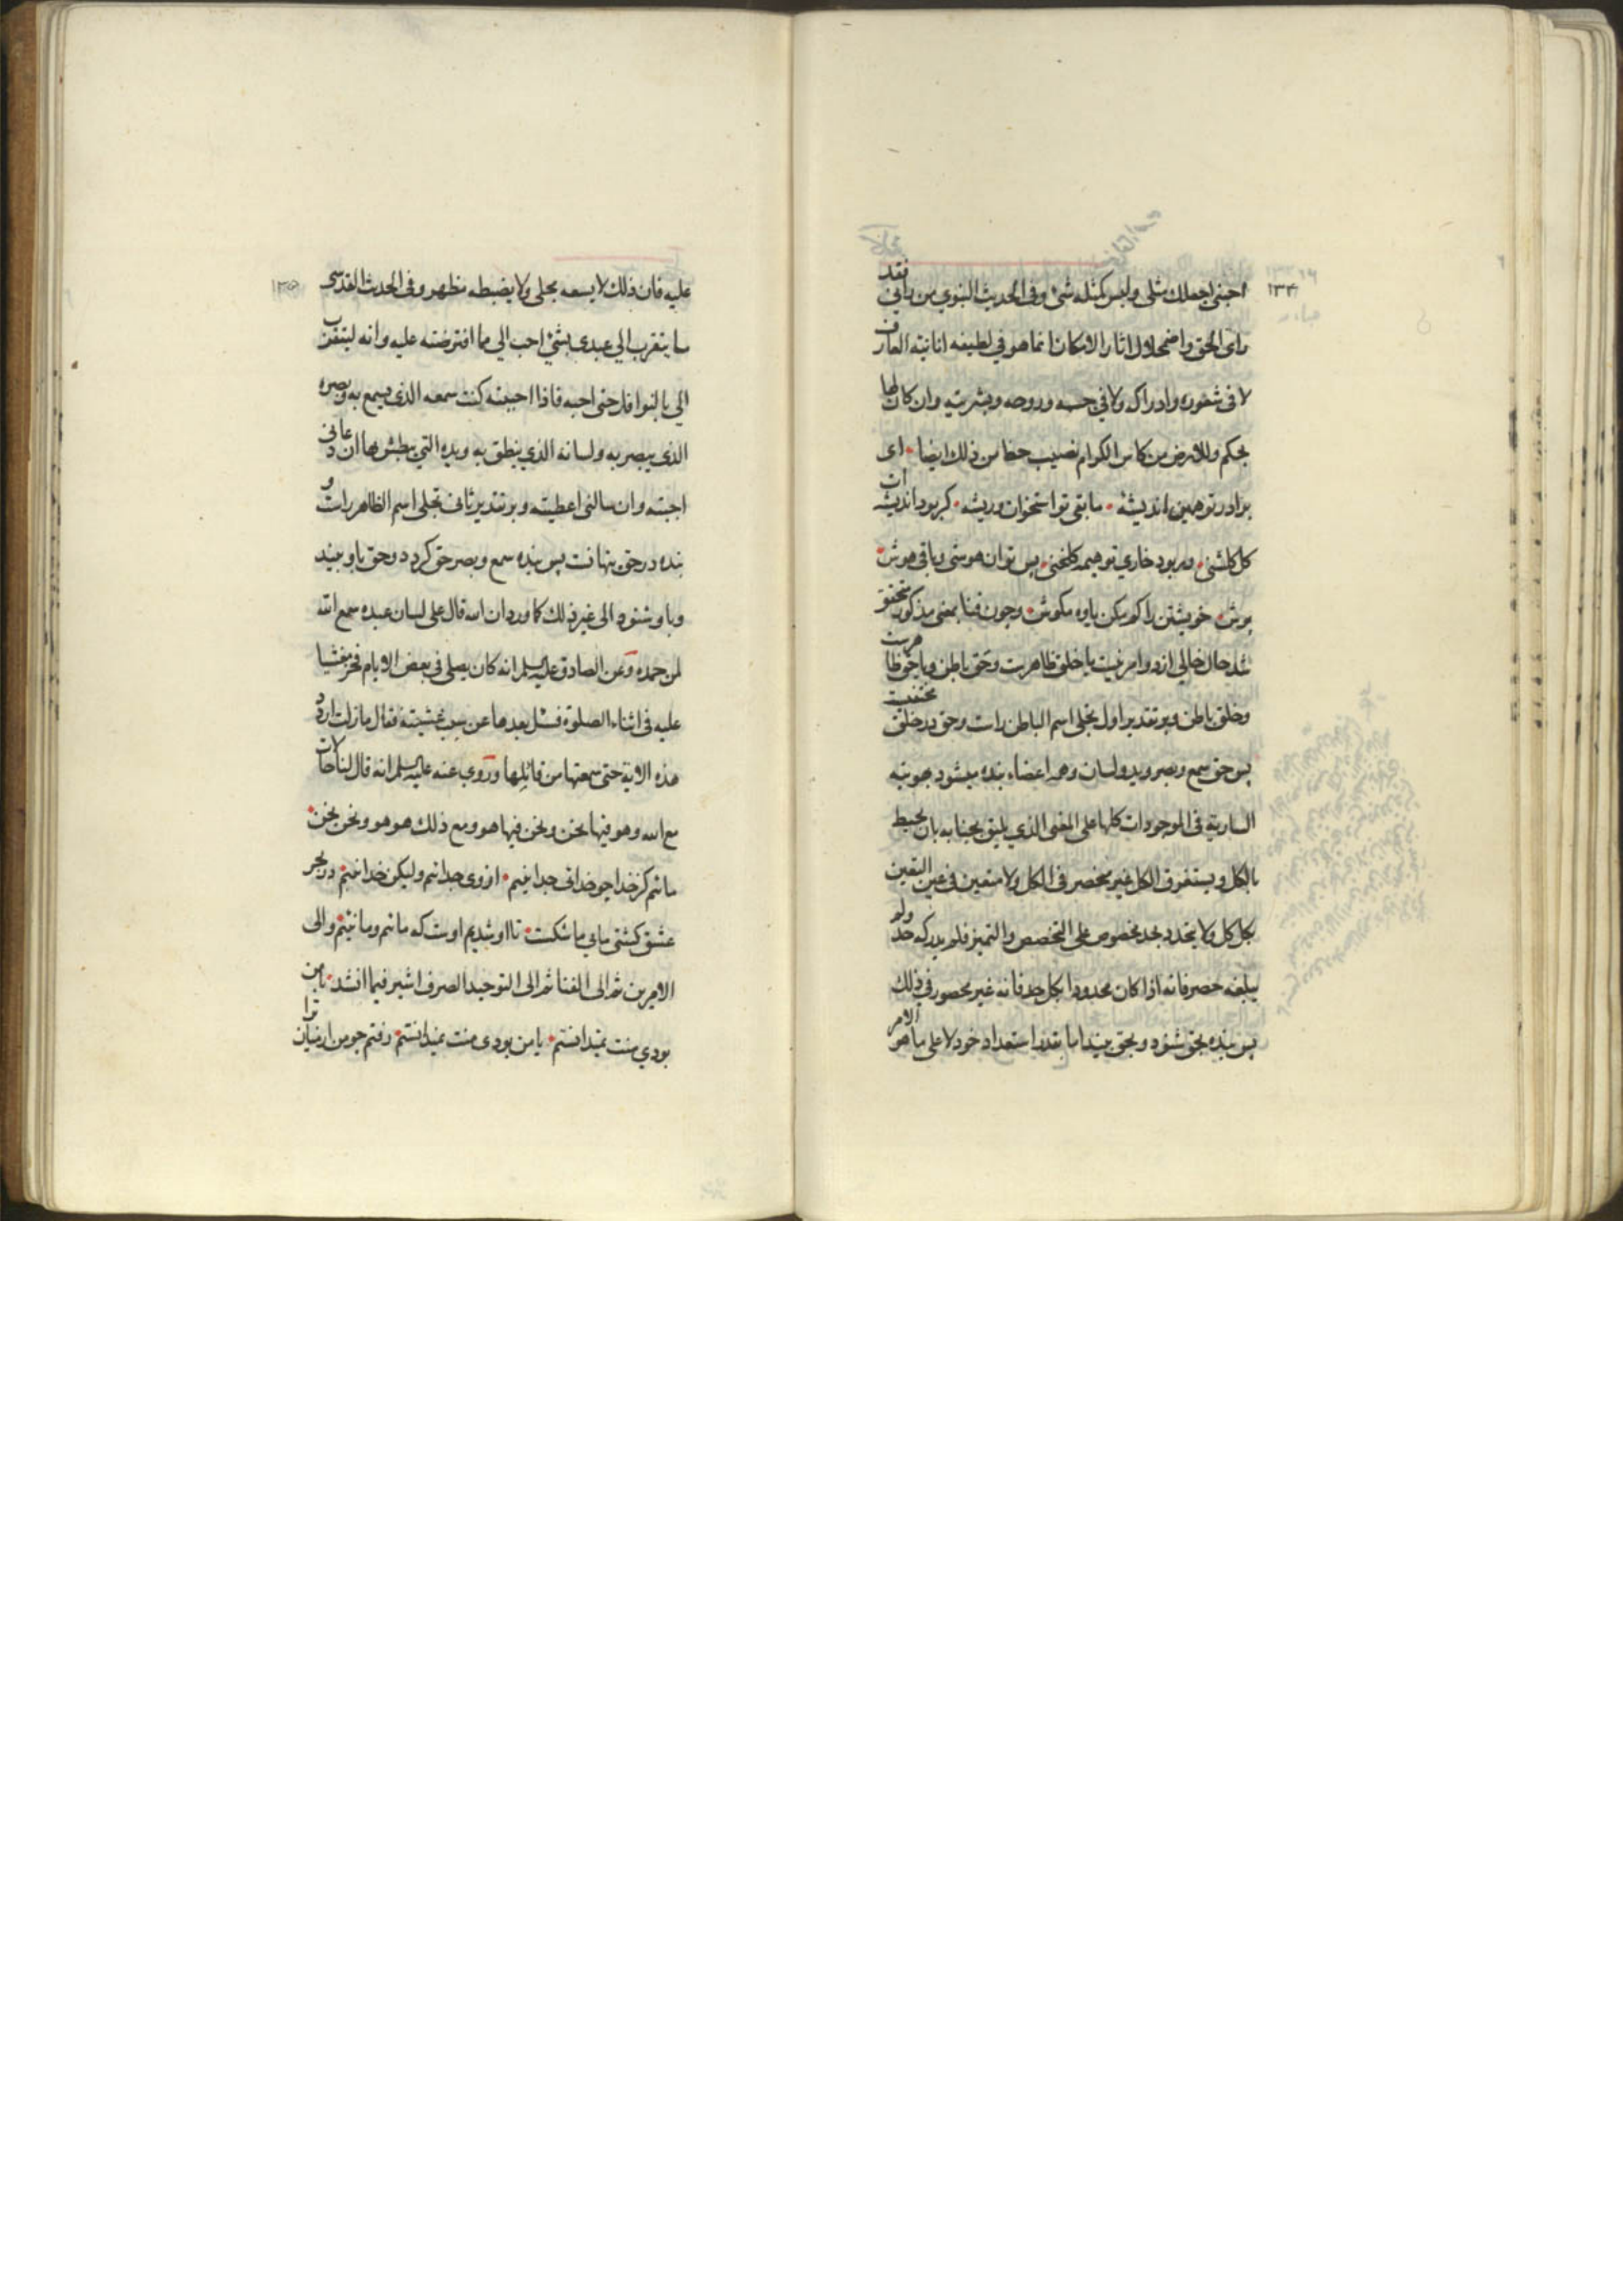 ۱۳۴
احبنی اجعلك مثلی ولیس كمثله شئ وفی الحدیث النبوی من رآنی فقد
رای الحق واضمحلال اثار الامكان انما هو فی لطیفه انانیته العارف
لا فی شعوره وادراكه ولا فی جسمه وروحه وبشریته وان كان لها
بحكم وللارض من كاس الكرام نصیب حظا من ذلك ایضا • ای
برادر تو همین اندیشهٔ • مابقی تو استخوان وریشه • كر بود اندیشه ات
كل كلشنی • ور بود خاری تو هیمه كلخنی • پس توان هوشی وباقی هوش
پوش • خویشتن را كم مكن یاوه مكوش • وچون فنا بمعنی مذكور متحقق
شد حال خالی از دو امر نیست یا خلق ظاهرست وحق باطن ویا حق ظاهرست
وخلق باطن وبر تقدیر اول تجلی اسم الباطن راست وحق در خلق مختفیست
پس حق سمع وبصر وید ولسان وهمه اعضاء بنده میشود بهویته
الساریة فی الموجودات كلها علی المعنی الذی یلیق بجنابه بان یحیط
بالكل ویستغرق الكل غیر منحصر فی الكل ولا متعین فی عین التعین
بكل كل ولا یتحدد بحد مخصوص علی التخصص والتمیز فلم یدركه حد ولم
یبلغه حصر فانه اذا كان محدودا بكل حد فانه غیر محصور فی ذلك
پس بنده بحق شنود وبحق بیند اما بقدر استعداد خود لا علی ما هو الامر
۱۳۵
علیه فان ذلك لا یسعه مجلی ولا یضبطه مظهر وفی الحدیث القدسی
ما یتقرب الی عبدی بشئ احب الی مما افترضته علیه وانه لیتقرب
الی بالنوافل حتی احبه فاذا احببته كنت سمعه الذی یسمع به وبصره
الذی یبصر به ولسانه الذی ینطق به ویده التی یبطش بها ان دعانی
اجبته وان سالنی اعطیته وبر تقدیر ثانی تجلی اسم الظاهر راست و
بنده در حق پنهانست پس بنده سمع وبصر حق كردد وحق باو بیند
وباو شنود الی غیر ذلك كما ورد ان الله قال علی لسان عبده سمع الله
لمن حمده وعن الصادق علیه السلم انه كان یصلی فی بعض الایام فخر مغشیا
علیه فی اثناء الصلوة فسئل بعدها عن سبب غشیته فقال مازلت اردد
هذه الایة حتی سمعتها من قائلها وروی عنه علیه السلم انه قال لنا حالات
مع الله وهو فیها نحن ونحن فیها هو ومع ذلك هو هو ونحن نحن •
مائیم كز خدا چو خدائی جدا نئیم • از وی جدا نئیم ولیكن خدا نئیم • در بحر
عشق كشتی مایی ما شكست • تا او شدیم اوست كه مائیم وما نئیم • والی
الامرین ثم الی الفنا ثم الی التوحید الصرف اشیر فیما انشد • با من
بودی منت نمیدانستم • یا من بودی منت نمیدانستم • رفتم چو من از میان ترا